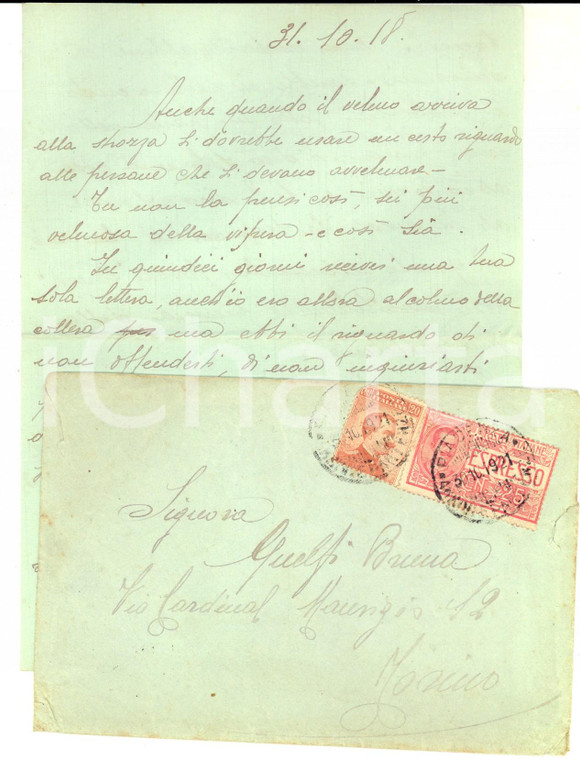 31. 10. 18.
Anche quando il veleno arriva
alla strozza si dovrebbe usare un certo riguardo
alle persone che si devono avvelenare -
Tu non la pensi così, sei più
velenosa della vipera - e così sia.
In quindici giorni ricevei una tua
sola lettera, anch'io ero allora al colmo della
collera ma ebbi il riguardo di
non offenderti, di non ingiuriarti
iCharta
ESPRESSO
1921
Signora
Guelfi Bruna
Via Cardinal Maurizio 12
Torino